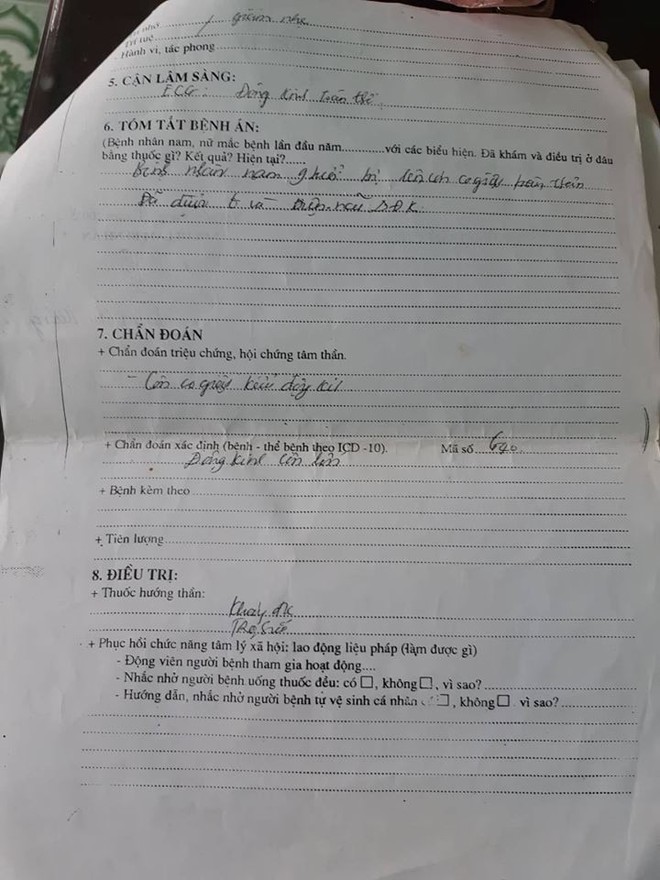 Trí tuệ
Hành vi, tác phong
5. CẬN LÂM SÀNG:
Động kinh toàn thể
6. TÓM TẮT BỆNH ÁN:
(Bệnh nhân nam, nữ mắc bệnh lần đầu năm............với các biểu hiện. Đã khám và điều trị ở đâu
bằng thuốc gì? Kết quả? Hiện tại?......
bệnh nhân nam bị lên cơn co giật toàn thân
Đã điều trị
7. CHẨN ĐOÁN
+ Chẩn đoán triệu chứng, hội chứng tâm thần.
- Cơn co giật kiểu động kinh
+ Chẩn đoán xác định (bệnh - thể bệnh theo ICD -10). Mã số G40
Động kinh cơn lớn
+ Bệnh kèm theo
+ Tiên lượng
8. ĐIỀU TRỊ:
+ Thuốc hướng thần:
+ Phục hồi chức năng tâm lý xã hội: lao động liệu pháp (làm được gì)
- Động viên người bệnh tham gia hoạt động....
- Nhắc nhở người bệnh uống thuốc đều: có □, không □, vì sao?
- Hướng dẫn, nhắc nhở người bệnh tự vệ sinh cá nhân □, không □ vì sao?